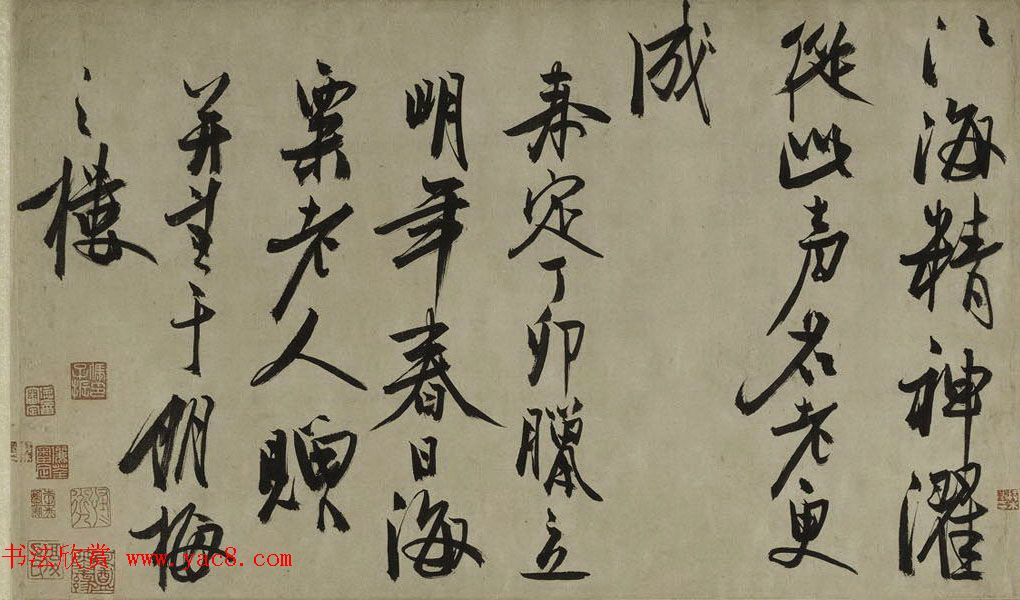 江海精神濯
從此声名老更
成
泰定丁卯臘立
明年春日海
粟老人賦
并書于朋梅
之樓
书法欣赏 www.yac8.com